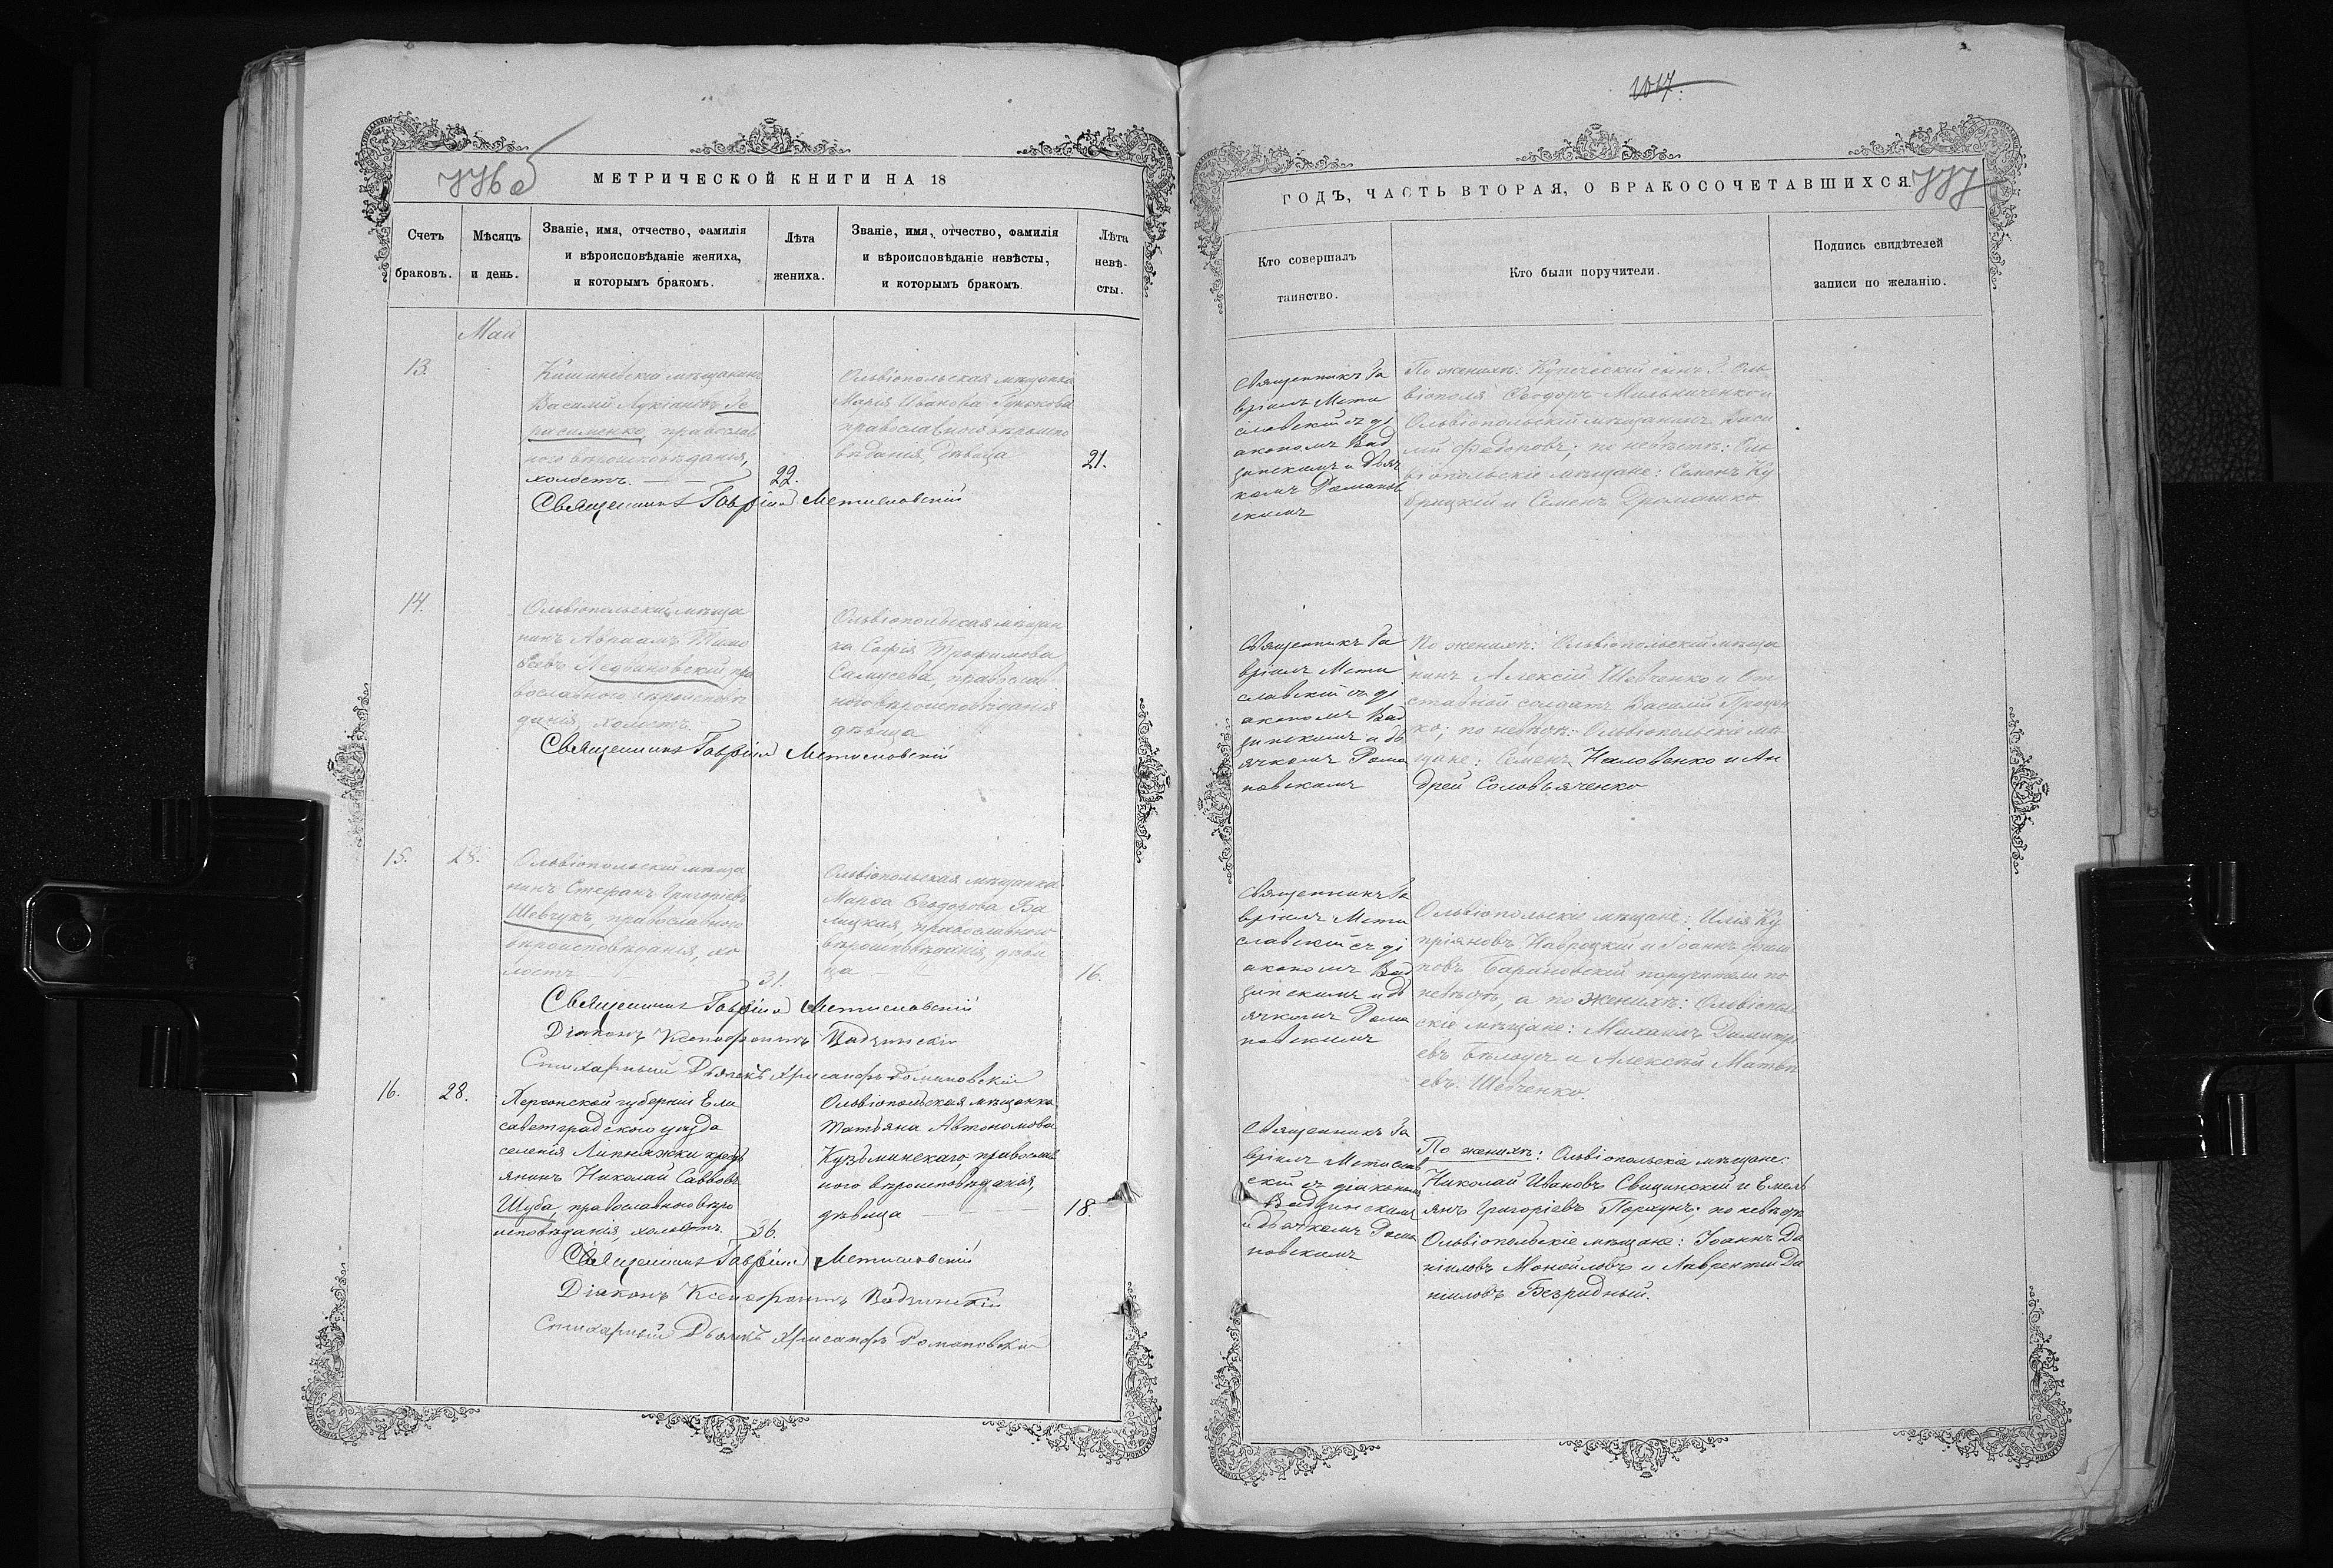 1017.
776 об
МЕТРИЧЕСКОЙ КНИГИ НА 18
Счетъ
браковъ.
Мѣсяцъ
и день.
Званіе, имя, отчество, фамилія
и вѣроисповѣданіе жениха,
и которымъ бракомъ.
Лѣта
жениха.
Званіе, имя, отчество, фамилія
и вѣроисповѣданіе невѣсты,
и которымъ бракомъ.
Лѣта
невѣ-
сты.
Май
13.
Кишиневскій мѣщанинъ
Василій Лукіановъ Ге
расименко, православ
наго вѣроисповѣданія,
холостъ.
22.
Ольвіопольская мѣщанка
Марія Иванова
православного вѣроиспо
вѣданія, дѣвица
21.
Священникъ Гавріилъ Метиславскій
14.
Ольвіопольскій мѣща
нинъ Авраамъ Тимо
ѳеевъ пра
вославного вѣроисповѣ
данія, холостъ.
Ольвіопольская мѣщан
ка Софія Трофимова
Самусева, православ
ного вѣроисповѣданія
дѣвица
Священникъ Гавріилъ Метиславскій
15.
28.
Ольвіопольскій мѣща
нинъ Стефанъ Григоріевъ
Шевчукъ, православного
вѣроисповѣданія, хо
лостъ
31.
Ольвіопольская мѣщанка
Марѳа Ѳеодорова Ба
лицкая, православного
вѣроисповѣданія, дѣви
ца
16.
Священникъ Гавріилъ Метиславскій
Діаконъ Ксенофонтъ Вадзинскій
Стихарный Дьячекъ Хрисанфъ Романовскій
16.
28.
Херсонской губерніи Ели
саветградского уѣзда
селенія Липняжки крест
янинъ Николай Савовъ
Шуба, православного вѣро
исповѣданія, холостъ.
36.
Ольвіопольская мѣщанка
Татьяна Автономова
Кузьминскаго, православ
ного вѣроисповѣданія,
дѣвица
18.
Священникъ Гавріилъ Метиславскій
Діаконъ Ксенофонтъ Вадзинскій
Стихарный Дьячекъ Хрисанфъ Романовскій
ГОДЪ, ЧАСТЬ ВТОРАЯ, О БРАКОСОЧЕТАВШИХСЯ.
777
Кто совершалъ
таинство.
Кто были поручители.
Подпись свидѣтелей
записи по желанію.
Священникъ Га
вріилъ Мети
славскій съ ді
акономъ Вад
зинскимъ и дьяч
комъ Романов
скимъ
По женихѣ: Купеческій сынъ Г. Оль
віополя Ѳеодоръ Мильниченко и
Ольвіопольскій мѣщанинъ Васи
лій Федоровъ; по невѣстѣ: Оль
віопольскіе мѣщане: Семенъ Ку
брицкій и Семенъ Дромашко.
Священникъ Га
вріилъ Мети
славскій съ ді
акономъ Вад
зинскимъ и дь
ячкомъ Рома
новскимъ
По женихѣ: Ольвіопольскій мѣща
нинъ Алексій Шевченко и От
ставной солдатъ Василій Процен
ко; по невѣстѣ: Ольвіопольскіе мѣ
щане: Семенъ Наловенко и Ан
дрей Соловьяченко
Священникъ Га
вріилъ Мети
славскій съ ді
акономъ Вад
зинскимъ и дь
ячкомъ Рома
новскимъ
Ольвіопольскіе мѣщане: Илія Ку
пріяновъ Навроцкій и Іоаннъ Фили
повъ Барановскій поручители по
невѣстѣ, а по женихѣ: Ольвіополь
скіе мѣщане: Михаилъ Димитрі
евъ Бѣлоусъ и Алексѣй Матвѣ
евъ Шевченко.
Священникъ Га
вріилъ Метислав
скій съ діакономъ
Вадзинскимъ
и дьячкомъ Рома
новскимъ
По женихѣ: Ольвіопольскіе мѣщане:
Николай Ивановъ Свицинскій и Емель
янъ Григоріевъ Порхунъ; по невѣстѣ
Ольвіопольскіе мѣщане: Іоаннъ Да
ніиловъ Монойловъ и Лаврентій Да
ніиловъ Безридный.